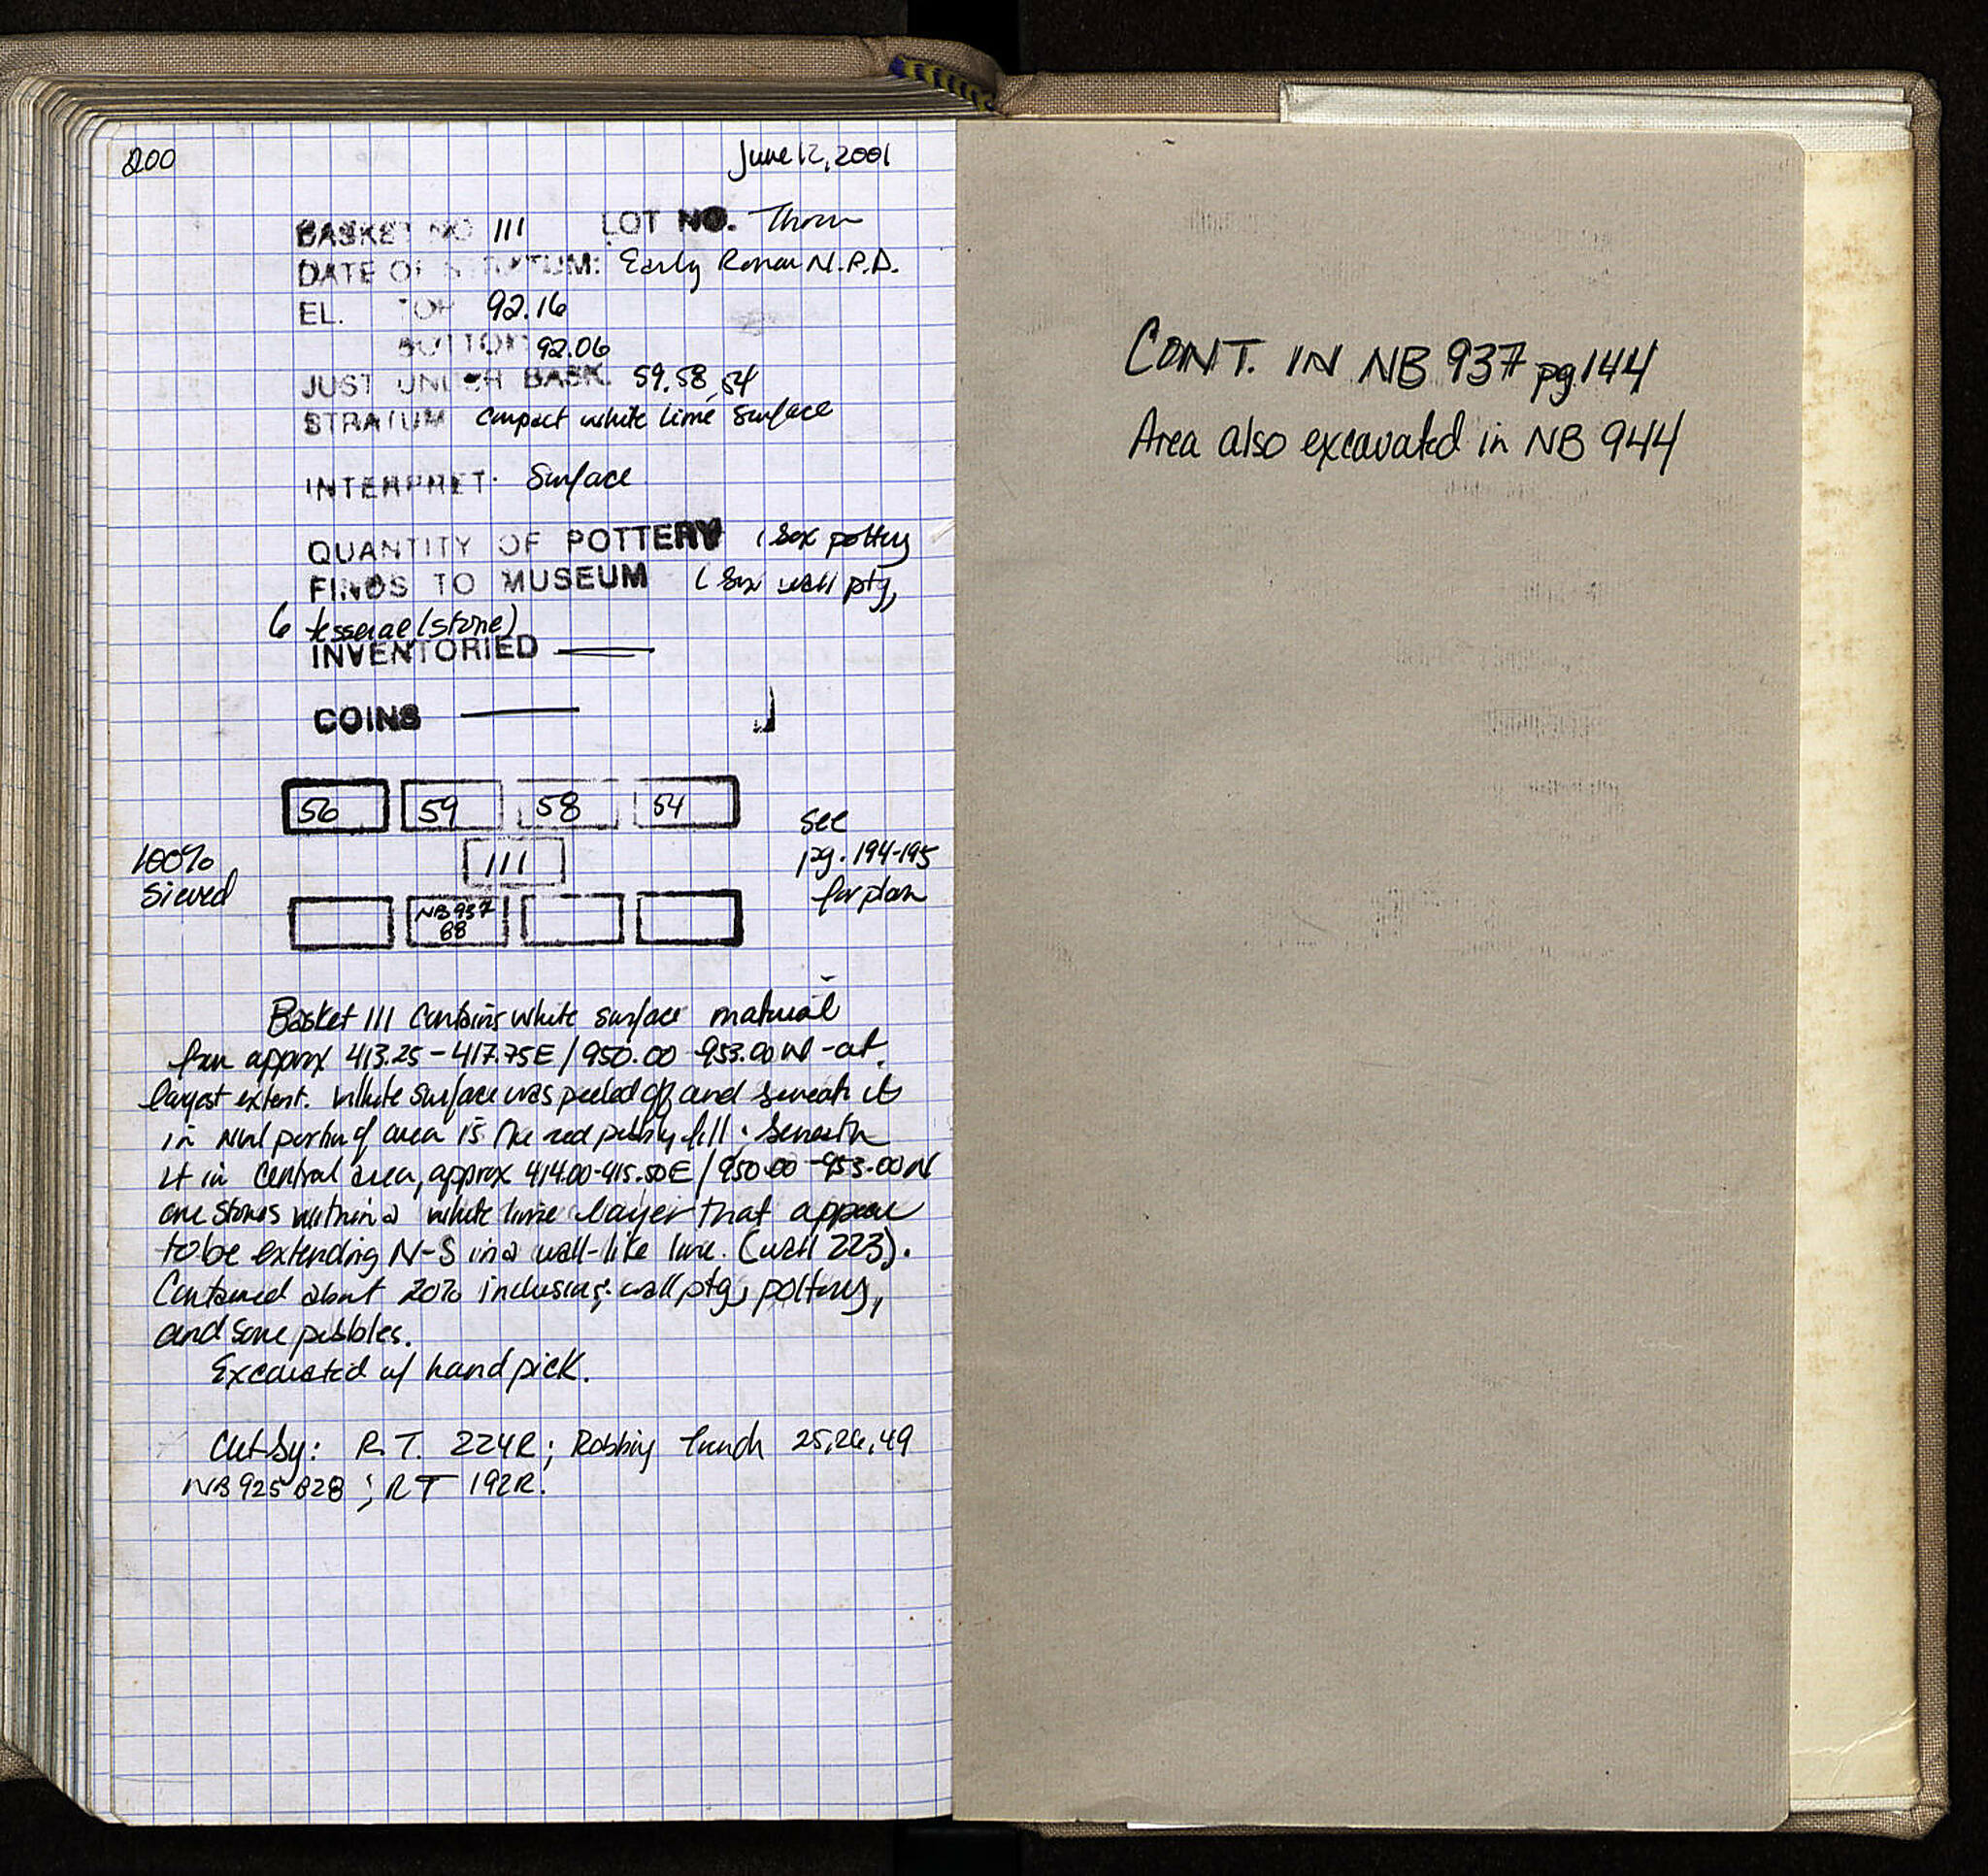 200 June 12, 2001
BASKET NO 111 LOT NO. Throw
DATE OF STRATUM: Early Roman N.P.D.
EL. TOP 92.16
BOTTOM 92.06
JUST UNDER BASK. 59, 58, 54
STRATUM compact white lime surface
INTERPRET. Surface
QUANTITY OF POTTERY 1 box pottery
FINDS TO MUSEUM 1 box wall ptg,
6 tesserae (stone)
INVENTORIED —
COINS —
56 59 58 54
see
111
pg. 194-195
100%
sieved
for plan
NB 937
88
Basket 111 contains white surface material
from approx 413.25 - 417.75E / 950.00 - 953.00 N - at
largest extent. White surface was peeled off and beneath it
in NW portion of area is the red pebbly fill; beneath
it in central area, approx 414.00-415.50E / 950.00 - 953.00 N
are stones within a white lime layer that appear
to be extending N-S in a wall-like line. (wall 223).
Contained about 20% inclusions: wall ptg, pottery,
and some pebbles.
Excavated w/ hand pick.
Cut by: R.T. 224R; Robbing trench 25, 26, 49
NB 925 B28; RT 192R.
CONT. IN NB 937 pg 144
Area also excavated in NB 944